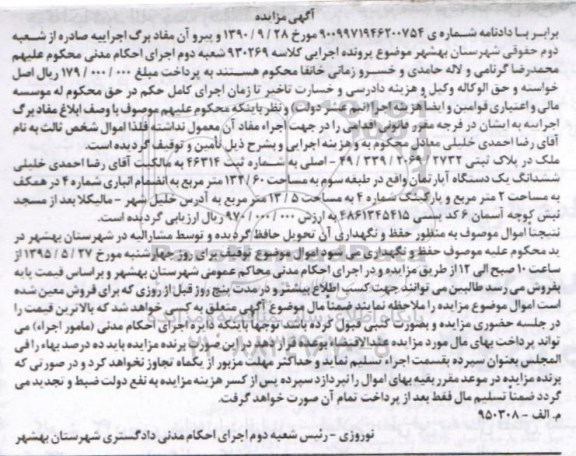 آگهی مزایده
برابر با دادنامه شماره ی ۹۰۰۹۹۷۱۹۴۶۲۰۰۷۵۴ مورخ ۲۸ / ۹ / ۱۳۹۰ و پیرو آن مفاد برگ اجراییه صادره از شعبه
دوم حقوقی شهرستان بهشهر موضوع پرونده اجرایی کلاسه ۹۳۰۲۶۹ شعبه دوم اجرای احکام مدنی محکوم علیهم
محمدرضا گرنامی و لاله حامدی و خسرو زمانی خانقا محکوم هستند به پرداخت مبلغ ۰۰۰ / ۰۰۰ / ۱۷۹ ریال اصل
خواسته و حق الوکاله وکیل و هزینه دادرسی و خسارت تاخیر تا زمان اجرای کامل حکم در حق محکوم له موسسه
مالی و اعتباری قوامین و ایضا هزینه اجرا نیم عشر دولتی و نظر باینکه محکوم علیهم موصوف با وصف ابلاغ مفاد برگ
اجراییه به ایشان در فرجه مقرر قانونی اقدامی را در جهت اجراء مفاد آن معمول نداشته فلذا اموال شخص ثالث به نام
آقای رضا احمدی خلیلی معادل محکوم به و هزینه اجرایی و بشرح ذیل تأمین و توقیف گردیده است.
ملک در پلاک ثبتی ۲۷۳۲ / ۲۰۶۹ / ۳۳۹ / ۴۹ - اصلی به شماره ثبت ۴۶۳۱۴ به مالکیت آقای رضا احمدی خلیلی
ششدانگ یک دستگاه آپارتمان واقع در طبقه سوم به مساحت ۶۰ / ۱۳۲ متر مربع به انضمام انباری شماره ۴ در همکف
به مساحت ۲ متر مربع و پارکینگ شماره ۴ به مساحت ۵ / ۱۳ متر مربع به آدرس خلیل شهر - مالیکلا بعد از مسجد
نبش کوچه آسمان ۶ کد پستی ۴۸۶۱۳۴۵۴۱۵ به ارزش ۰۰۰ / ۰۰۰ / ۹۷۰ ریال ارزیابی گردیده است.
نتیجتا اموال موصوف به منظور حفظ و نگهداری آن تحویل حافظ گردیده و توسط مشارالیه در شهرستان بهشهر در
ید محکوم علیه موصوف حفظ و نگهداری می شود اموال موضوع توقیف برای روز چهارشنبه مورخ ۲۷ / ۵ / ۱۳۹۵ از
ساعت ۱۰ صبح الی ۱۲ از طریق مزایده و در اجرای احکام مدنی محاکم عمومی شهرستان بهشهر و براساس قیمت پایه
بفروش می رسد طالبین می توانند جهت کسب اطلاع بیشتر و در مدت پنج روز قبل از روزی که برای فروش معین شده
است اموال موضوع مزایده را ملاحظه نمایند ضمنا مال موضوع آگهی متعلق به کسی خواهد شد که بالاترین قیمت را
در جلسه حضوری مزایده و بصورت کتبی قبول کرده باشد توجها باینکه دایره اجرای احکام مدنی (مامور اجراء) می
تواند پرداخت بهای مال مورد مزایده علیالاقتضاء بوعده قرار دهد در این صورت برنده مزایده باید ده درصد بهاء را فی
المجلس بعنوان سپرده بقسمت اجراء تسلیم نماید و حداکثر مهلت مزبور از یکماه تجاوز نخواهد کرد و در صورتی که
برنده مزایده در موعد مقرر بقیه بهای اموال را نپردازد سپرده پس از کسر هزینه مزایده به نفع دولت ضبط و تجدید می
گردد ضمنا تسلیم مال فقط بعد از پرداخت تمام آن صورت خواهد گرفت.
م. الف - ۹۵۰۳۰۸
نوروزی - رئیس شعبه دوم اجرای احکام مدنی دادگستری شهرستان بهشهر